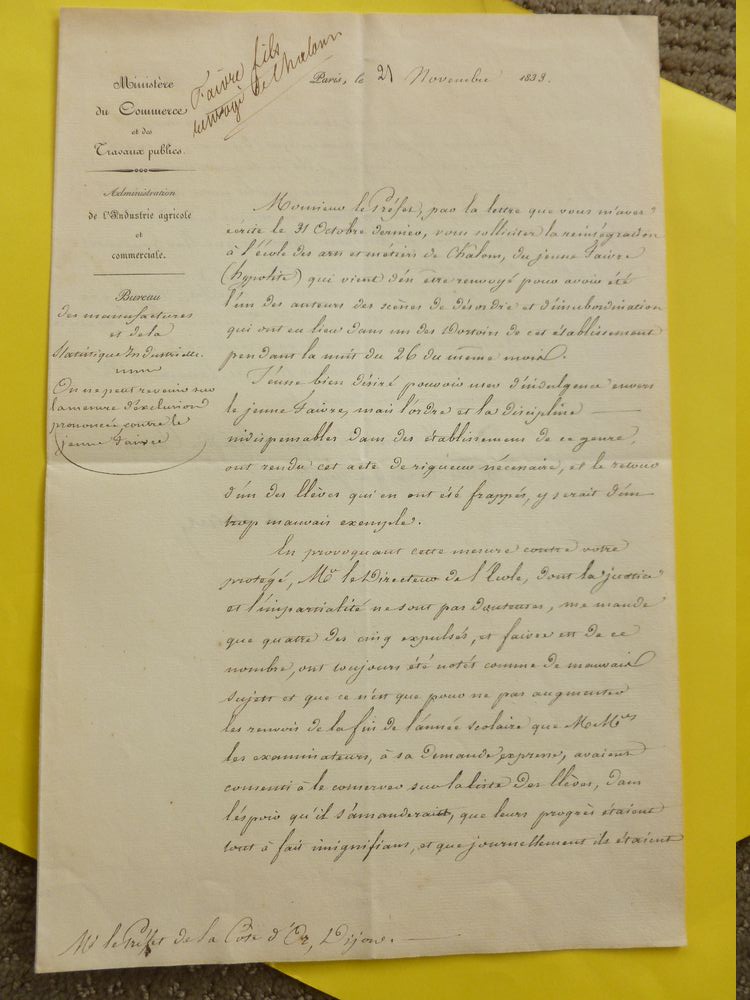 Faivre fils
renvoyé de Chalons
Paris, le 21 Novembre 1833.
Ministère
du Commerce
et des
Travaux publics.
Administration
de l'Industrie agricole
et
commerciale.
Bureau
des manufactures
et de la
Statistique Industrielle.
On ne peut revenir sur
la mesure d'exclusion
prononcée contre le
jeune Faivre
Monsieur le Préfet, par la lettre que vous m'avez
écrite le 31 Octobre dernier, vous sollicitez la réintégration
à l'école des arts et métiers de Chalons, du jeune Faivre
(hypolite) qui vient d'en être renvoyé pour avoir été
l'un des auteurs des scènes de désordre et d'insubordination
qui ont eu lieu dans un des Dortoirs de cet établissement
pendant la nuit du 26 du même mois.
J'eusse bien désiré pouvoir user d'indulgence envers
le jeune Faivre, mais l'ordre et la discipline
indispensables dans des établissemens de ce genre,
ont rendu cet acte de rigueur nécessaire, et le retour
d'un des Elèves qui en ont été frappés, y serait d'un
trop mauvais exemple.
En provoquant cette mesure contre votre
protégé, Mr le Directeur de l'Ecole, dont la justice
et l'impartialité ne sont pas douteuses, me mande
que quatre des cinq expulsés, et faivre est de ce
nombre, ont toujours été notés comme de mauvais
sujets et que ce n'est que pour ne pas augmenter
les renvois de la fin de l'année scolaire que MMrs
les examinateurs, à sa demande expresse, avaient
consenti à le conserver sur la liste des Elèves, dans
l'espoir qu'il s'amanderait, que leurs progrès étaient
tout à fait insignifians, et que journellement ils étaient
Mr le Préfet de la Côte d'Or, Dijon.